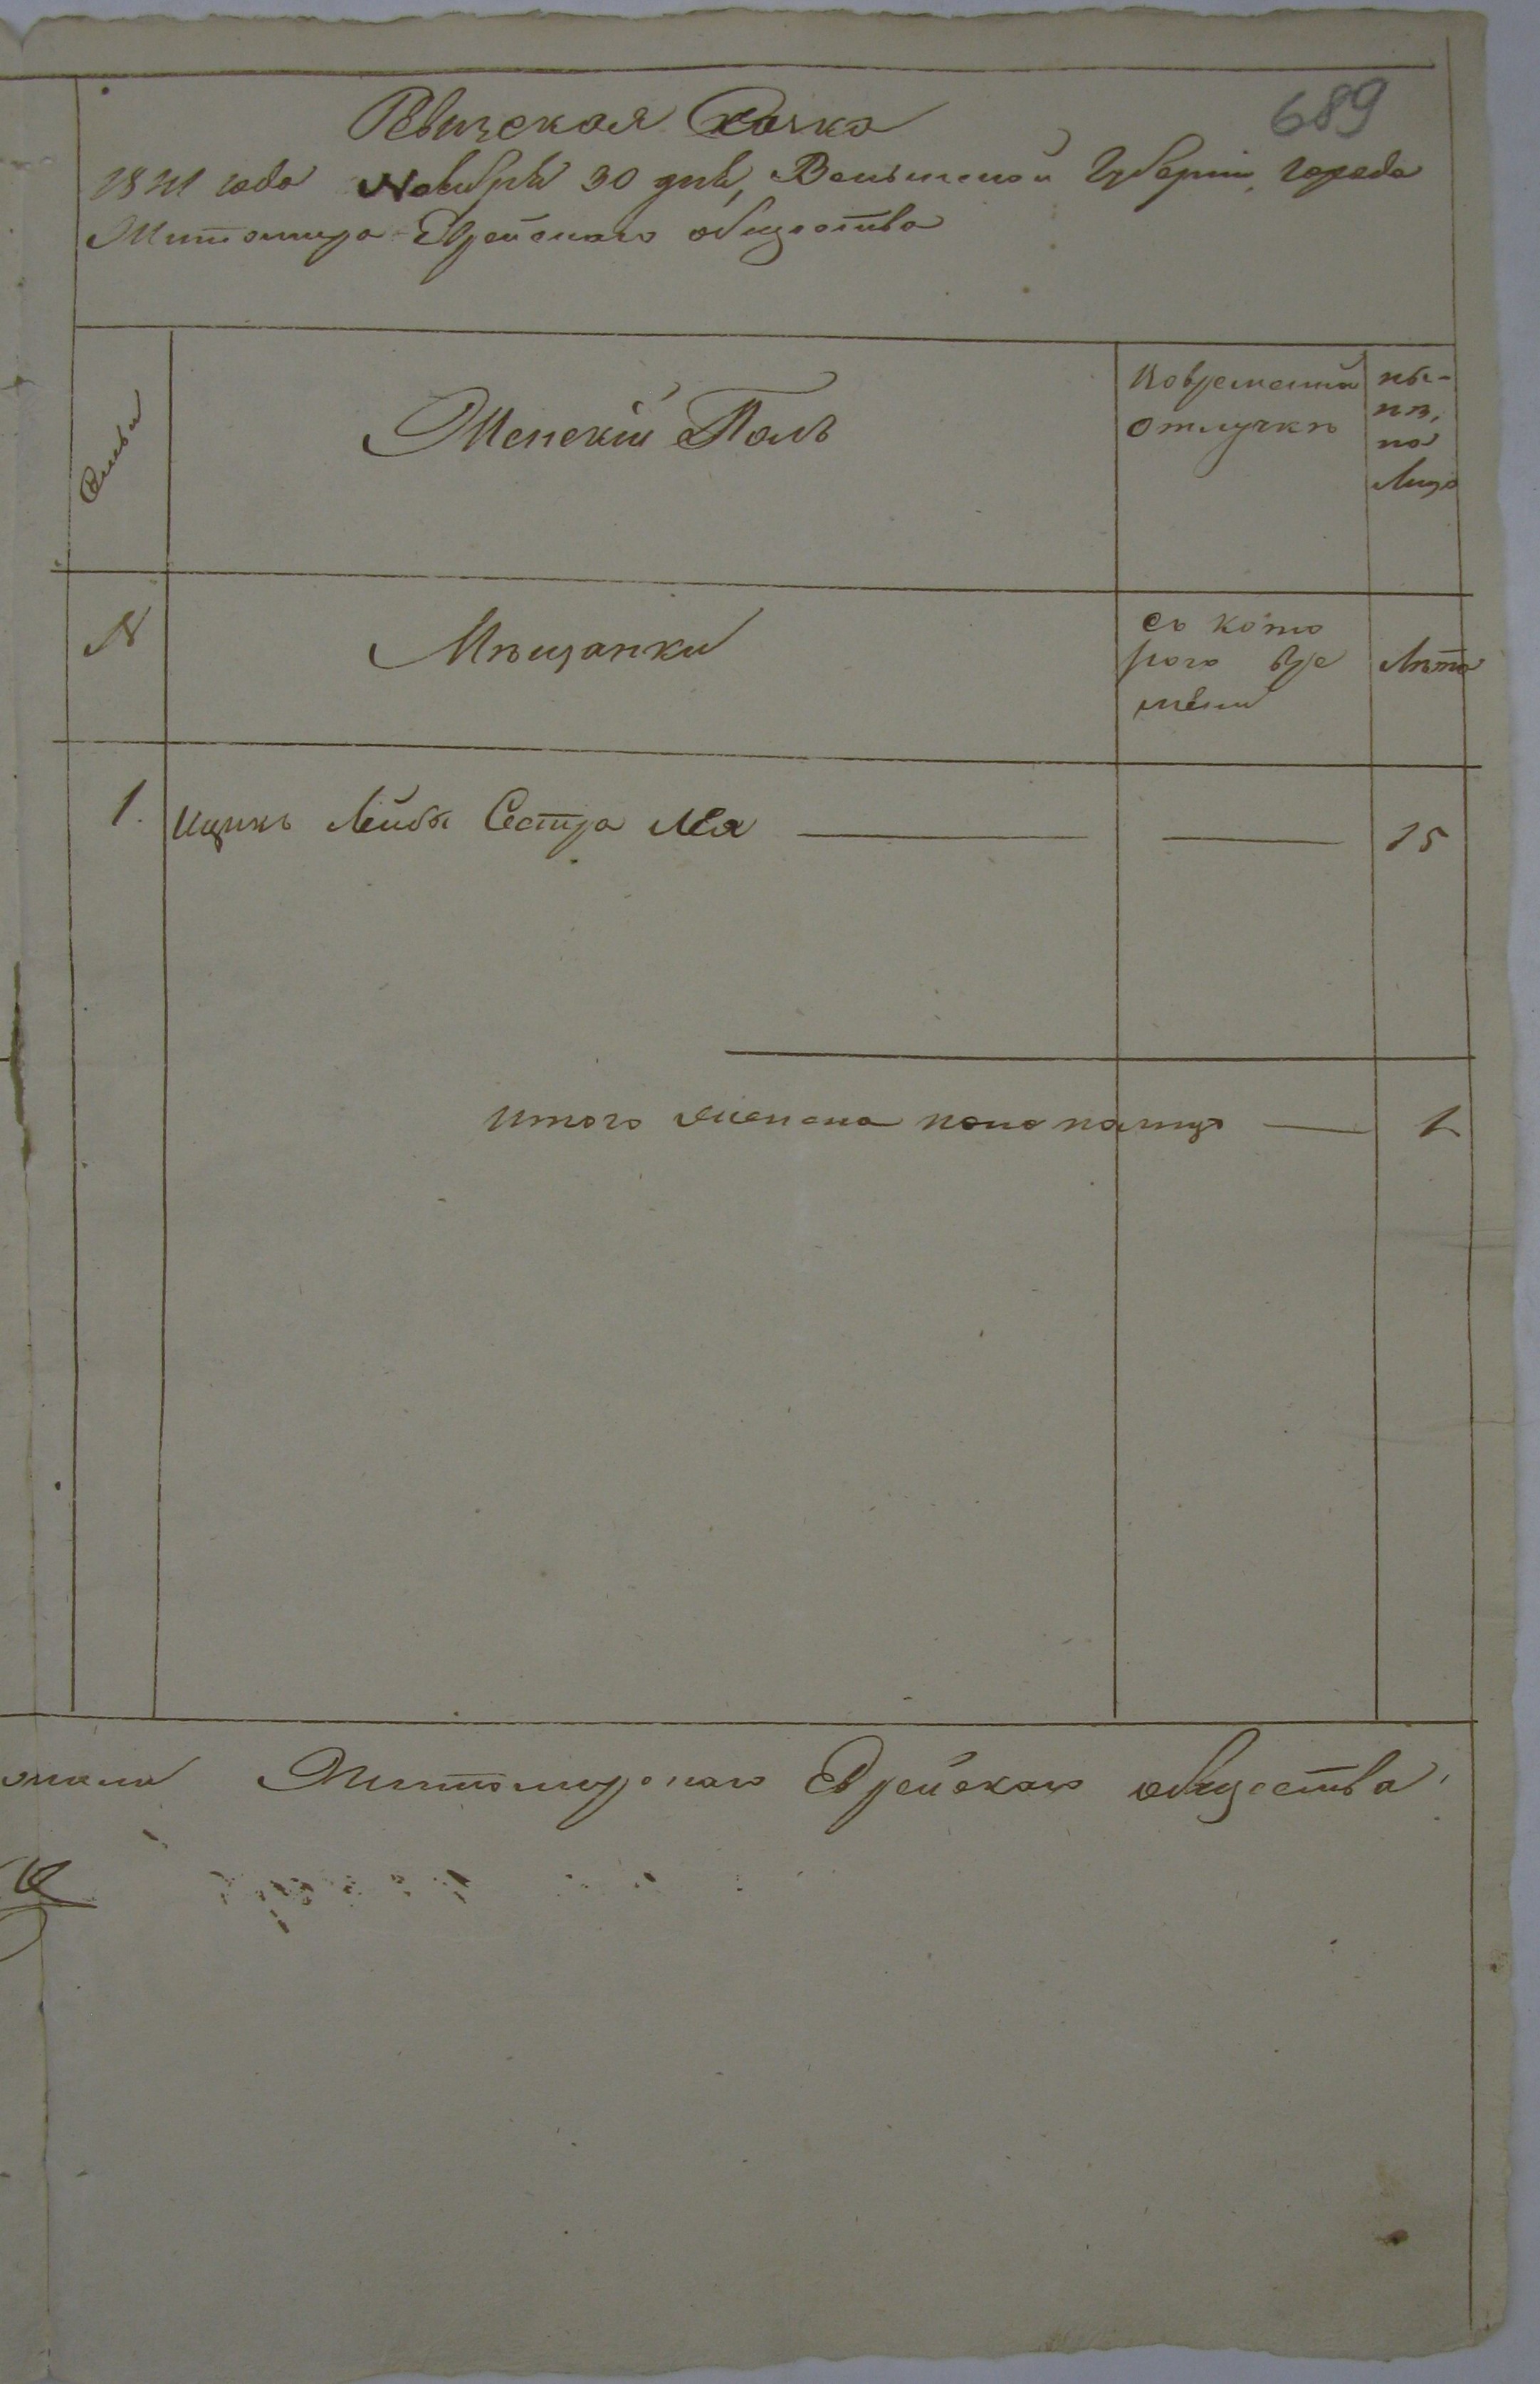 689
Ревизская Скаска
1841 года Ноября 30 дня, Волынской Губерніи, города
Житомира Еврейскаго общества
Семьи
Женскій Полъ
Во временной
отлучкѣ
ны-
нѣ,
на
лицо
N
Мѣщанки
съ кото
раго вре
мени
Лѣта
1. Ицикъ Лейбы Сестра Лея — — 15
Итого женска пола налицо — 1
Житомирскаго Еврейскаго общества